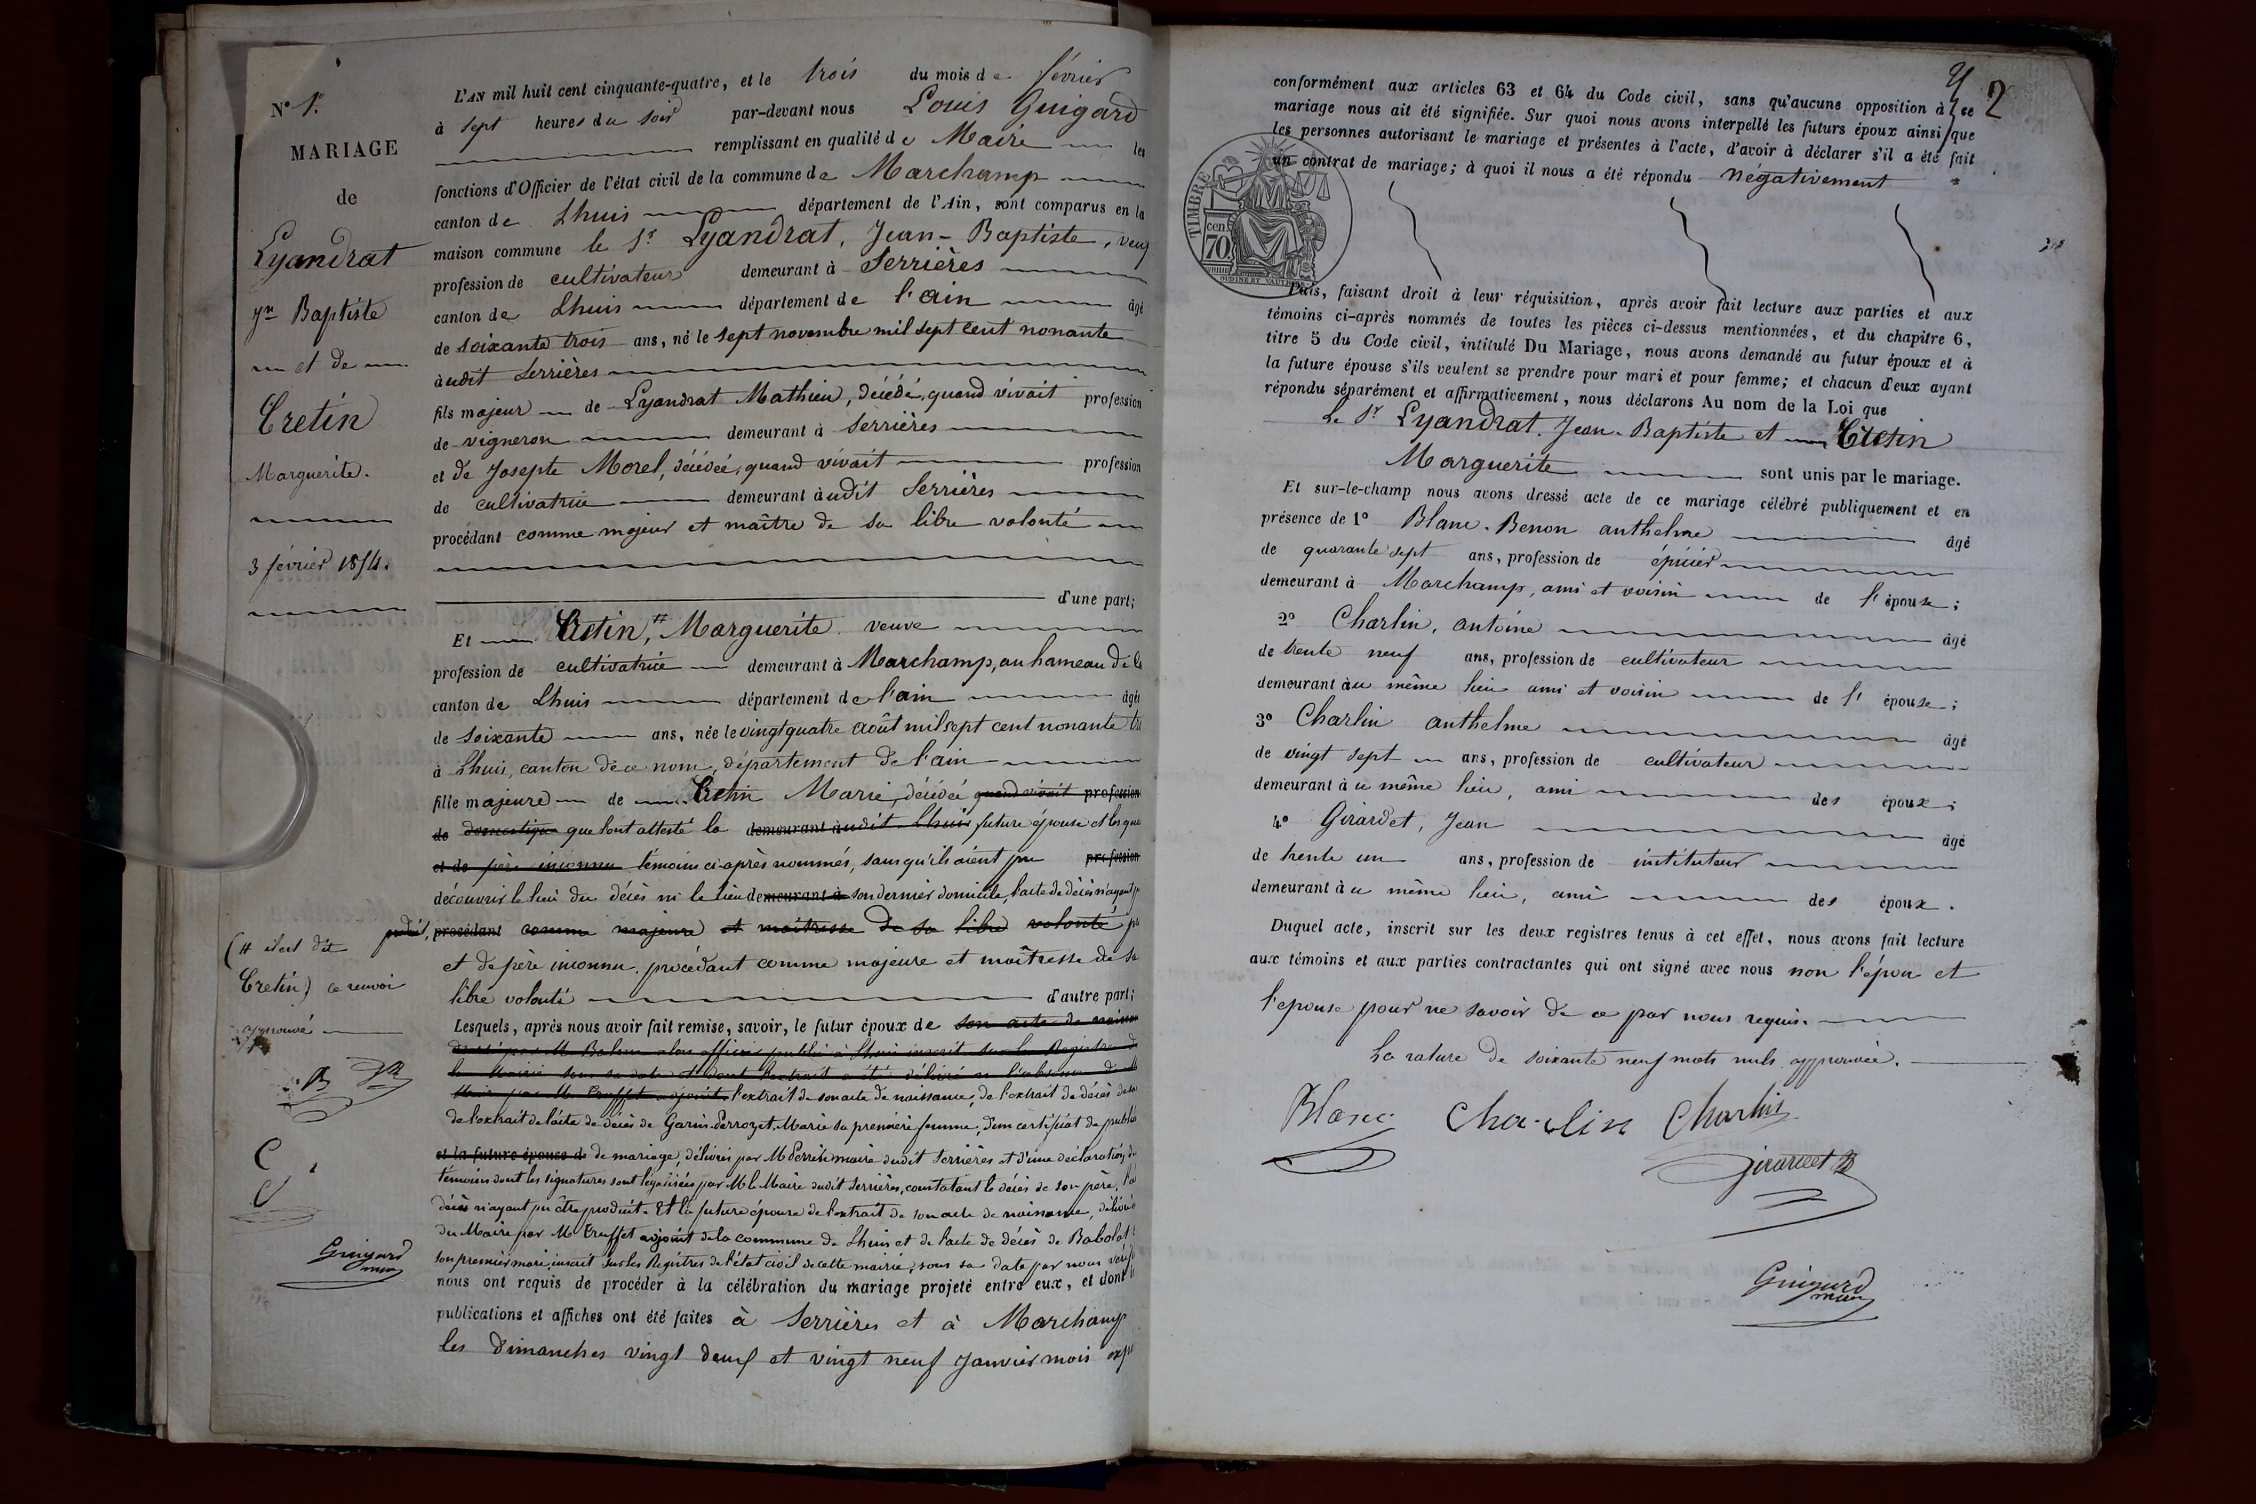 N° 1.
MARIAGE
de
Lyandrat
Jn Baptiste
et de
Cretin
Marguerite.
3 février 1854.
(# il est dit
Cretin) ce renvoi
approuvé
B
C
C
Guigard
maire
L'AN mil huit cent cinquante-quatre, et le trois du mois de février
à sept heures du soir par-devant nous Louis Guigard
remplissant en qualité de Maire les
fonctions d'Officier de l'état civil de la commune de Marchamp
canton de Lhuis département de l'Ain, sont comparus en la
maison commune le Sr Lyandrat, Jean-Baptiste, veuf
profession de cultivateur demeurant à Serrières
canton de Lhuis département de l'ain âgé
de soixante trois ans, né le sept novembre mil sept cent nonante
audit Serrières
fils majeur de Lyandrat Mathieu, décédé, quand vivait profession
de vigneron demeurant à Serrières
et de Josepte Morel, décédée, quand vivait profession
de cultivatrice demeurant audit Serrières
procédant comme majeur et maître de sa libre volonté
d'une part;
Et Cretin,# Marguerite veuve
profession de cultivatrice demeurant à Marchamp, au hameau de
canton de Lhuis département de l'ain âgée
de soixante ans, née le vingt quatre août mil sept cent nonante
à Lhuis, canton de ce nom, département de l'ain
fille majeure de Cretin Marie, décédée quand vivait profession
de domestique que l'ont attesté la demeurant audit Lhuis future épouse et les que
et de père inconnu témoins ci-après nommés, sans qu'ils aient pu profession
découvrir le lieu du décès ni le lieu demeurant à son dernier domicile, l'acte de décès n'ayant
produit, procédant comme majeure et maîtresse de sa libre volonté
et de père inconnu procédant comme majeure et maîtresse de sa
libre volonté d'autre part;
Lesquels, après nous avoir fait remise, savoir, le futur époux de son acte de
l'extrait de son acte de naissance, de l'extrait de décès de
de l'extrait de l'acte de décès de Garin-Perrozet, Marie sa première femme, d'un certificat de
et la future épouse de de mariage, délivrés par M Perret maire dudit Serrières et d'une déclaration
témoins dont les signatures sont légalisées par M le Maire dudit Serrières, constatant le décès de son père,
décès n'ayant pu être produit. Et la future épouse de l'extrait de son acte de naissance, délivré
du Maire par M Truffet adjoint de la commune de Lhuis et de l'acte de décès de Babolat
son premier mari, inscrit sur les Registres de l'état civil de cette mairie, sous sa date par nous
nous ont requis de procéder à la célébration du mariage projeté entre eux, et dont
publications et affiches ont été faites à Serrières et à Marchamp
les dimanches vingt deux et vingt neuf janvier mois
2
conformément aux articles 63 et 64 du Code civil, sans qu'aucune opposition à ce
mariage nous ait été signifiée. Sur quoi nous avons interpellé les futurs époux ainsi que
les personnes autorisant le mariage et présentes à l'acte, d'avoir à déclarer s'il a été fait
un contrat de mariage; à quoi il nous a été répondu négativement
TIMBRE
cen.
70.
Puis, faisant droit à leur réquisition, après avoir fait lecture aux parties et aux
témoins ci-après nommés de toutes les pièces ci-dessus mentionnées, et du chapitre 6,
titre 5 du Code civil, intitulé Du Mariage, nous avons demandé au futur époux et à
la future épouse s'ils veulent se prendre pour mari et pour femme; et chacun d'eux ayant
répondu séparément et affirmativement, nous déclarons Au nom de la Loi que
Le Sr Lyandrat. Jean-Baptiste et Cretin
Marguerite sont unis par le mariage.
Et sur-le-champ nous avons dressé acte de ce mariage célébré publiquement et en
présence de 1° Blanc-Benon anthelme âgé
de quarante sept ans, profession de épicier
demeurant à Marchamp, ami et voisin de l'épouse;
2° Charlin, antoine âgé
de trente neuf ans, profession de cultivateur
demeurant au même lieu ami et voisin de l'épouse;
3° Charlin anthelme âgé
de vingt sept ans, profession de cultivateur
demeurant au même lieu, ami des époux;
4° Girardet, Jean âgé
de trente un ans, profession de instituteur
demeurant au même lieu, ami des époux.
Duquel acte, inscrit sur les deux registres tenus à cet effet, nous avons fait lecture
aux témoins et aux parties contractantes qui ont signé avec nous non l'époux et
l'épouse pour ne savoir de ce par nous requis.
La rature de soixante neuf mots nuls approuvée.
Blanc Charlin Charlin
Girardet
Guigard
maire